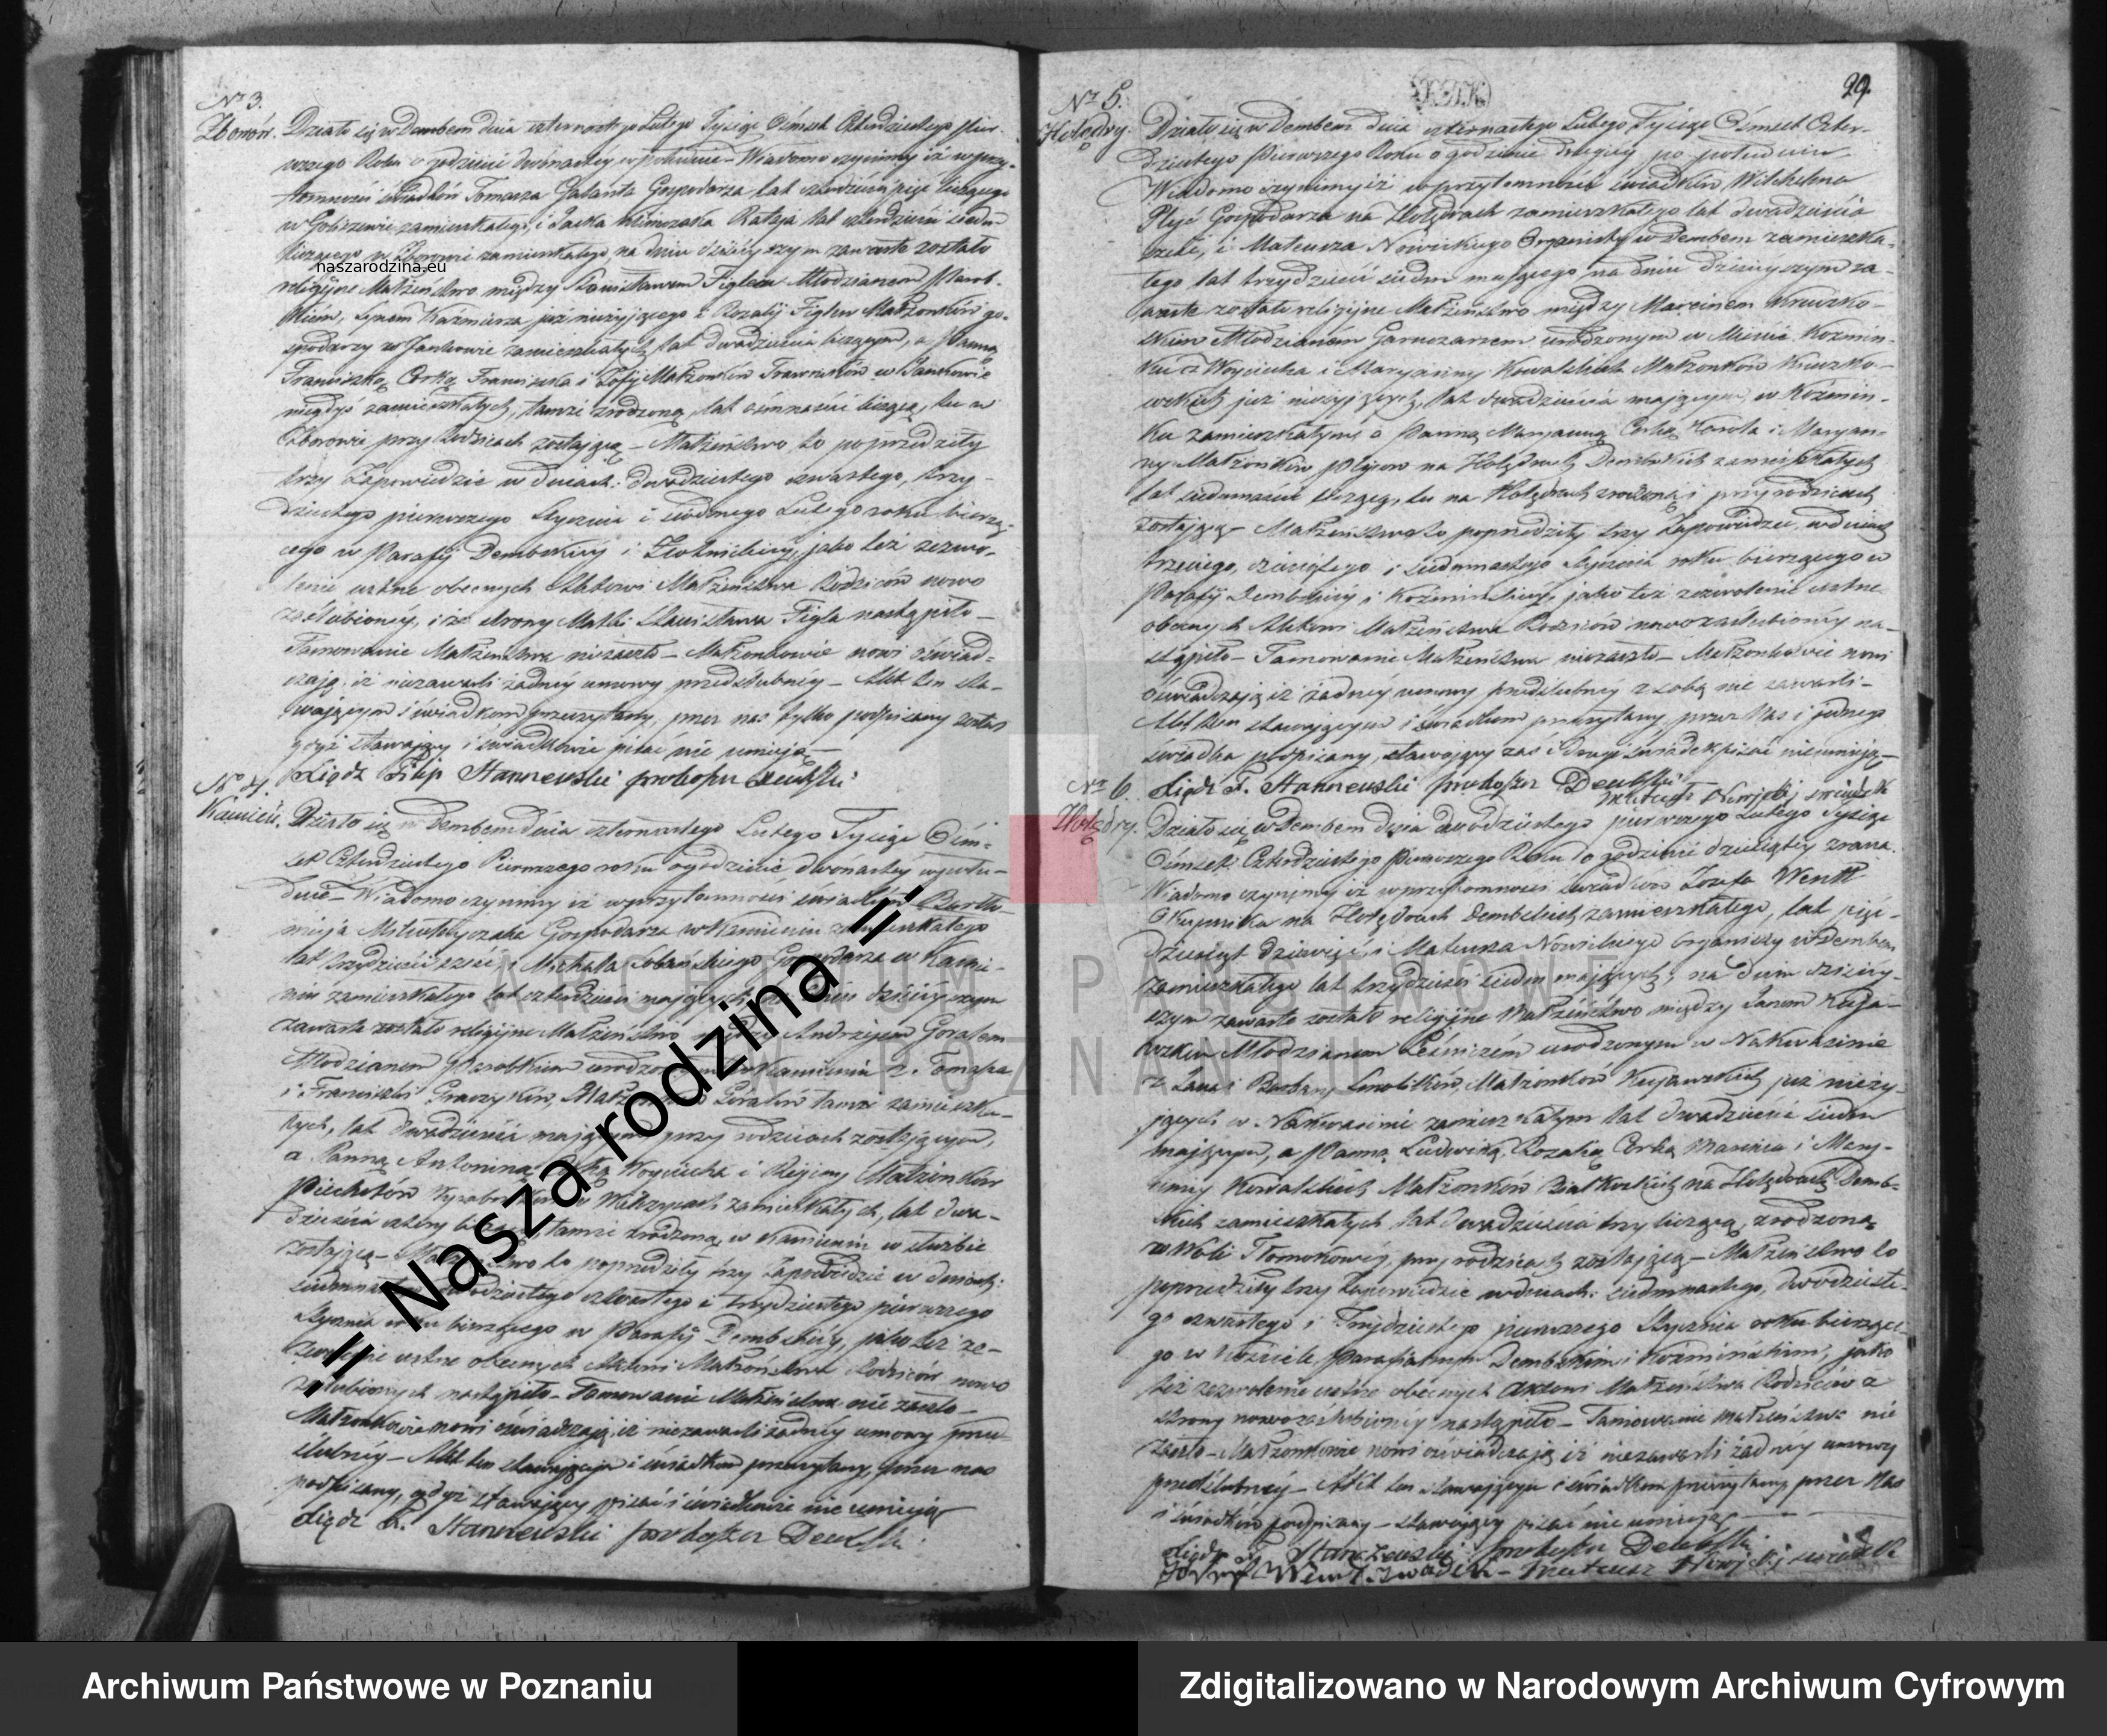 Nr 3.
Zborów. Działo się w Dembem dnia czternastego Lutego Tysiąc Ośmset Czterdziestego Pier-
wszego Roku o godzinie dwónastej w południe – Wiadomo czynimy iż w przy-
tomności świadków Tomasza Galanta Gospodarza lat czterdzieści pięć liczącego
w zamieszkałego, i Jacka Klimczaka Rataja lat czterdzieści siedm
liczącego w Zborowie zamieszkałego, na dniu dzisiejszym zawarte zostało
naszarodzina.eu
religijne Małżeństwo między Stanisławem Figlem Młodzianem Parob-
kiem, Synem Kaźmierza już nieżyjącego i Rozalij Figlów Małżonków go-
spodarzy w Jankowie zamieszkałych, lat dwadzieścia liczącym, a Panną
Franciszką Corką Franciszka i Zofij Małżonków w Jankowie
niegdyś zamieszkałych, tamże zrodzoną, lat ośmnaście liczącą, tu w
Zborowie przy Rodzicach zostającą – Małżeństwo to poprzedziły
trzy Zapowiedzie w dniach: dwudziestego czwartego, trzy-
dziestego pierwszego Stycznia i siódmego Lutego roku bieżą-
cego w Parafij Dembskiej i jako też zezwo-
lenie ustne obecnych Aktowi Małżeństwa Rodziców nowo
zaślubionej, i ze strony Matki Stanisława Figla nastąpiło –
Tamowanie Małżeństwa niezaszło – Małżonkowie nowi oświad-
czają, iż niezawarli żadnej umowy przedślubnej – Akt ten sta-
wającym i świadkom przeczytany, przez nas tylko podpisany został
gdyż stawający i świadkowie pisać nie umieją –
Xiądz Filip Stanczewski proboszcz Dembski
Nr 4.
Kamień. Działo się w Dembem dnia czternastego Lutego Tysiąc Ośm-
set Czterdziestego Pierwszego roku o godzinie dwónastej w połu-
dnie – Wiadomo czynimy iż w przytomności świadków Bartło-
mieja Gospodarza w Kamieniu zamieszkałego
lat trzydzieści sześć, i Michała Sobańskiego Gospodarza w Kamie-
niu zamieszkałego lat czterdzieści mających, na dniu dzisiejszym
zawarte zostało religijne Małżeństwo między Andrzejem Goralem
Młodzianem Parobkiem urodzonym w Kamieniu z Tomasza
i Franciszki Małżonków Goralów tamże zamieszka-
łych, lat dwadzieścia mającym przy rodzicach zostającym,
a Panną Antoniną Corką Woyciecha i Reginy Małżonków
Piechotów w zamieszkałych, lat dwa-
dzieścia cztery liczącą, tamże zrodzoną, w Kamieniu w służbie
zostającą – Małżeństwo to poprzedziły trzy Zapowiedzie w dniach:
siedmnastego dwudziestego czwartego i trzydziestego pierwszego
Stycznia roku bieżącego w Parafij Dembskiej, jako też ze-
zwolenie ustne obecnych Aktowi Małżeństwa Rodziców nowo
zaślubionych nastąpiło – Tamowanie Małżeństwa nie zaszło –
Małżonkowie nowi oświadczają, iż niezawarli żadnej umowy przed-
ślubnej – Akt ten stawającym i świadkom przeczytany, przez nas
podpisany, gdyż stawający pisać i świadkowie nie umieją
Xiądz F. Stanczewski proboszcz Dembski
29.
Nr 5.
Holędry. Działo się w Dembem dnia czternastego Lutego Tysiąc Ośmset Czter-
dziestego Pierwszego Roku o godzinie drugiej po południu
Wiadomo czynimy iż w przytomności świadków Wilchelma
Gospodarza na Holędrach zamieszkałego lat dwadzieścia
i Mateusza Nowickiego Organisty w Dembem zamieszka-
łego lat trzydzieści siedm mającego na dniu dzisiejszym za-
warte zostało religijne Małżeństwo między Marcinem Kruszko-
wskim Młodzianem Garnczarzem urodzonym w Mieście Koźmin-
ku z Woyciecha i Maryanny Kowalskich Małżonków Kruszko-
wskich już nieżyjących, lat dwadzieścia mającym, w Koźmin-
ku zamieszkałym, a Panną Maryanną Corką Karola i Maryan-
ny Małżonków na Holędrach Dembskich zamieszkałych
lat siedmnaście liczącą, tu na Holędrach zrodzoną i przy rodzicach
zostającą – Małżeństwo to poprzedziły trzy Zapowiedzie w dniach
trzeciego, dziesiątego i siedmnastego Stycznia roku bieżącego w
Parafij Dembskiej i Koźminskiej, jako też zezwolenie ustne
obecnych Aktowi Małżeństwa Rodziców nowozaślubionej na-
stąpiło – Tamowanie Małżeństwa niezaszło – Małżonkowie nowi
oświadczają iż żadnej umowy przedślubnej z sobą nie zawarli –
Akt ten stawającym i świadkom przeczytany, przez Nas i jednego
świadka podpisany, stawający zaś i drugi świadek pisać nieumieją –
Xiądz F. Stanczewski proboszcz Dembski
Mateusz Nowicki świadek
Nr 6.
Holędry. Działo się w Dembem dnia dwudziestego pierwszego Lutego Tysiąc
Ośmset Czterdziestego Pierwszego Roku o godzinie dziesiątej zrana.
Wiadomo czynimy iż w przytomności świadków Józefa Wentt
Okupnika na Holędrach Dembskich zamieszkałego, lat pięć-
dziesiąt dziewięć, i Mateusza Nowickiego organisty w Dembem
zamieszkałego lat trzydzieści siedm mających, na dniu dzisiej-
szym zawarte zostało religijne Małżeństwo między Janem Kuja-
wskim Młodzianem Leśniczem urodzonym w Nakwasinie
z Jana i Barbary Małżonków Kujawskich już nieży-
jących w Nakwasinie zamieszkałym lat dwadzieścia siedm
mającym, a Panną Ludwiką Rozalią Corką Marcina i Mary-
anny Kowalskich Małżonków Białkoskich na Holędrach Demb-
skich zamieszkałych lat dwadzieścia trzy liczącą, zrodzoną
w Woli Tłomokowej, przy rodzicach zostającą – Małżeństwo to
poprzedziły trzy Zapowiedzie w dniach: siedmnastego, dwódzieste-
go czwartego i Trzydziestego pierwszego Stycznia roku bieżące-
go w Kościele Parafialnym Dembskim i Koźmińskim, jako
też zezwolenie ustne obecnych Aktowi Małżeństwa Rodziców z
strony nowozaślubionej nastąpiło – Tamowanie Małżeństwa nie
zaszło – Małżonkowie nowi oświadczają iż niezawarli żadnej umowy
przedślubnej – Akt ten stawającym i świadkom przeczytany przez Nas
i świadków podpisany – stawający pisać nie umieją –
Xiądz F. Stanczewski proboszcz Dembski
Józef Wentt świadek – Mateusz Nowicki świadek
" Nasza rodzina "
ARCHIWUM PAŃSTWOWE
W POZNANIU
Archiwum Państwowe w Poznaniu
Zdigitalizowano w Narodowym Archiwum Cyfrowym